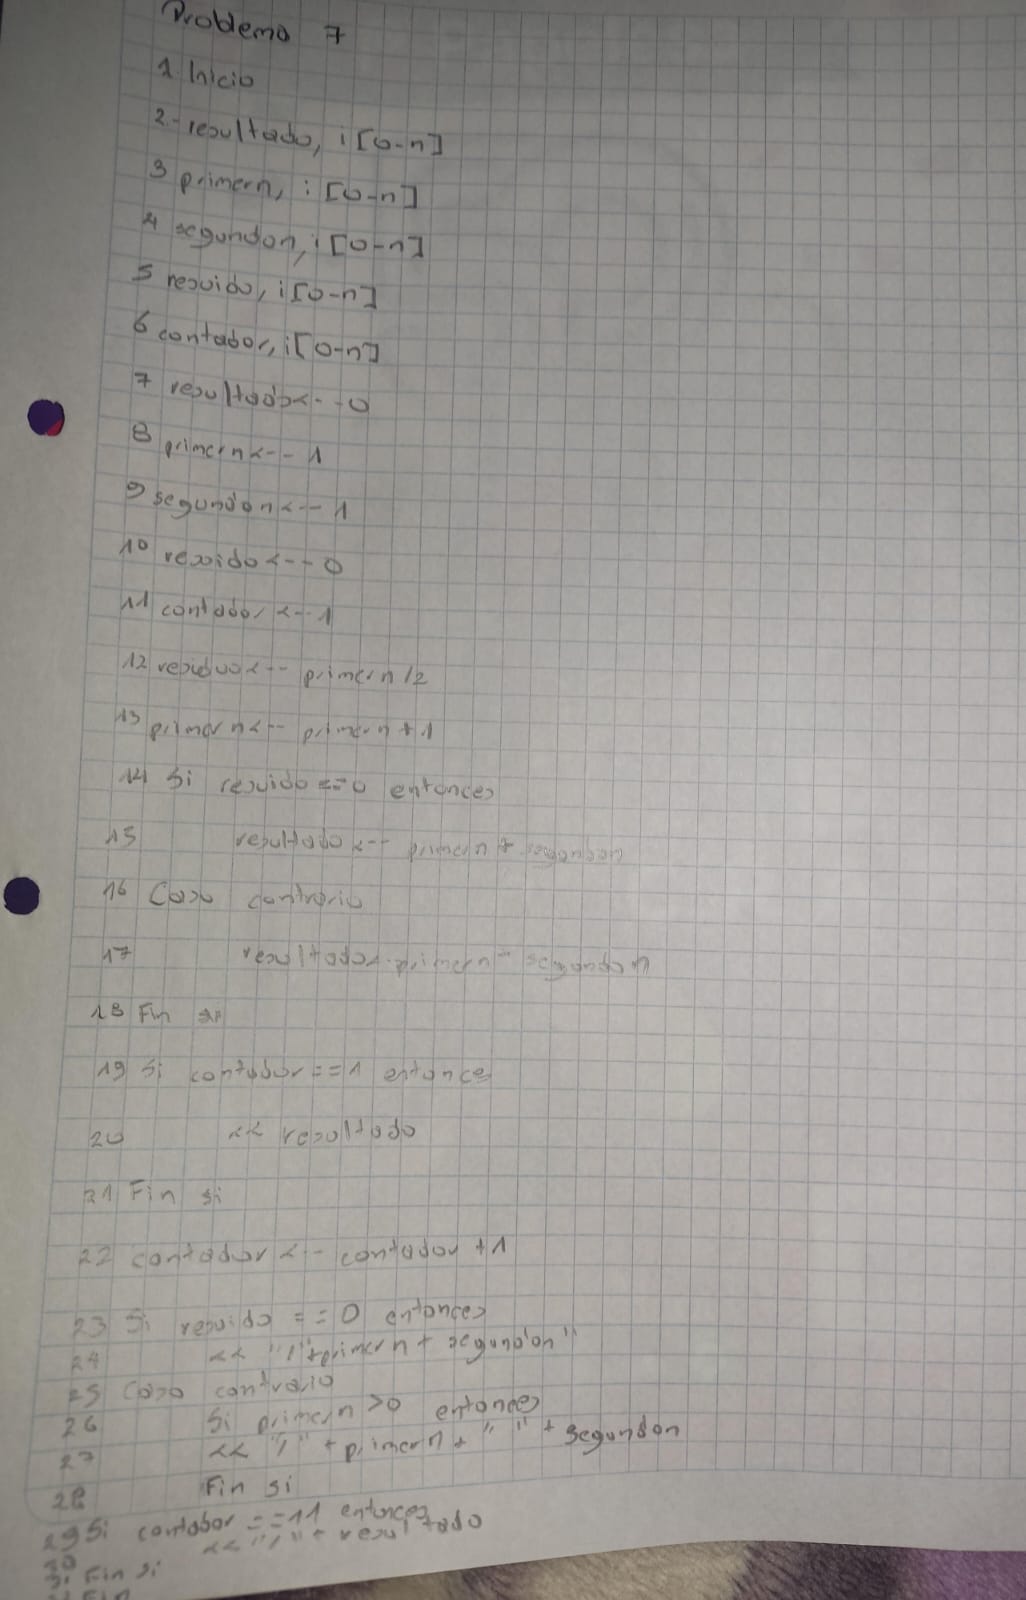 Problema 7
1 Inicio
2.- resultado, i [0-n]
3 primern, i [0-n]
4 segundon, i [0-n]
5 resuido, i [0-n]
6 contador, i [0-n]
7 resultado <-- 0
8 primern <-- 1
9 segundon <-- 1
10 resuido <-- 0
11 contador <-- 1
12 residuo <-- primern /2
13 primern <-- primern + 1
14 Si resuido == 0 entonces
15 resultado <-- primern + segundon
16 Caso contrario
17 resultado < primern - segundon
18 Fin si
19 Si contador == 1 entonces
20 << resultado
21 Fin si
22 contador <-- contador + 1
23 Si resuido == 0 entonces
24 << "/" + primern + segundon"
25 Caso contrario
26 Si primern > 0 entonces
27 << "/" + primern + " " + segundon
28 Fin si
29 Si contador == 11 entonces
30 << "/" + resultado
31 Fin si
Fin